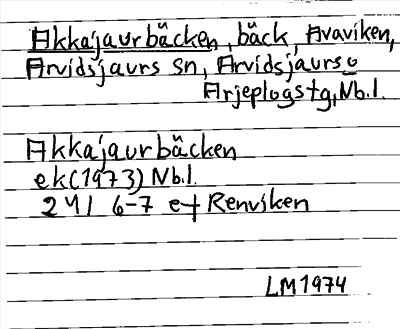 Akkajaurbäcken, bäck, Avaviken,
Arvidsjaurs sn, Arvidsjaurs o
Arjeplogs tg, Nb.l.
Akkajaurbäcken
ek (1973) Nb.l.
24I 6-7 e-f Renviken
LM 1974